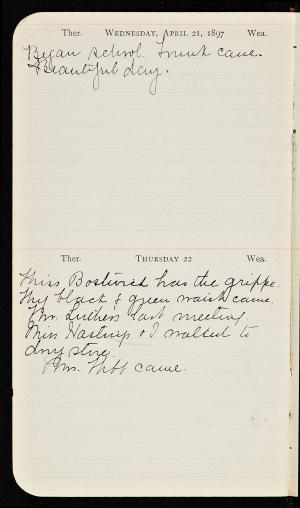 Ther. WEDNESDAY, APRIL 21, 1897 Wea.
Began school. Trunk came.
Beautiful day.
Ther. THURSDAY 22 Wea.
Miss Bostwick has the grippe.
My black & green waist came.
Mr. Luther's last meeting.
Miss Hastings & I walked to
drug store.
Mr. came.